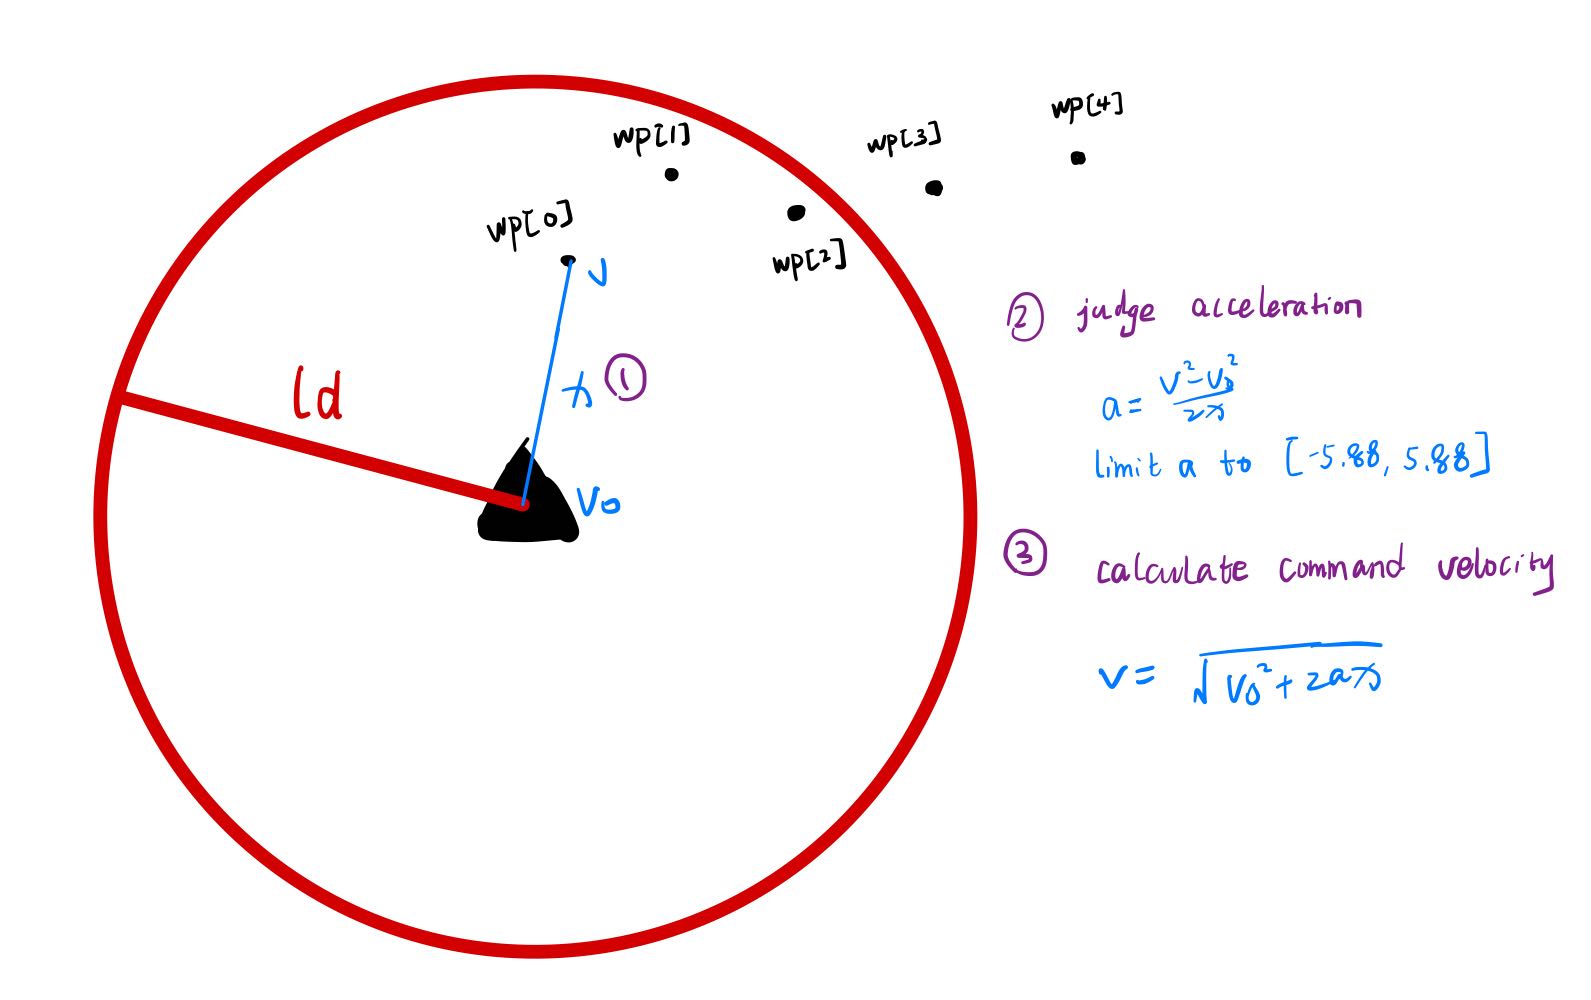 wp[4]
wp[1]
wp[3]
wp[0]
wp[2]
v
ld
x ①
v₀
② judge acceleration
a = (v² - v₀²) / 2x
limit a to [-5.88, 5.88]
③ calculate command velocity
v = √(v₀² + 2ax)